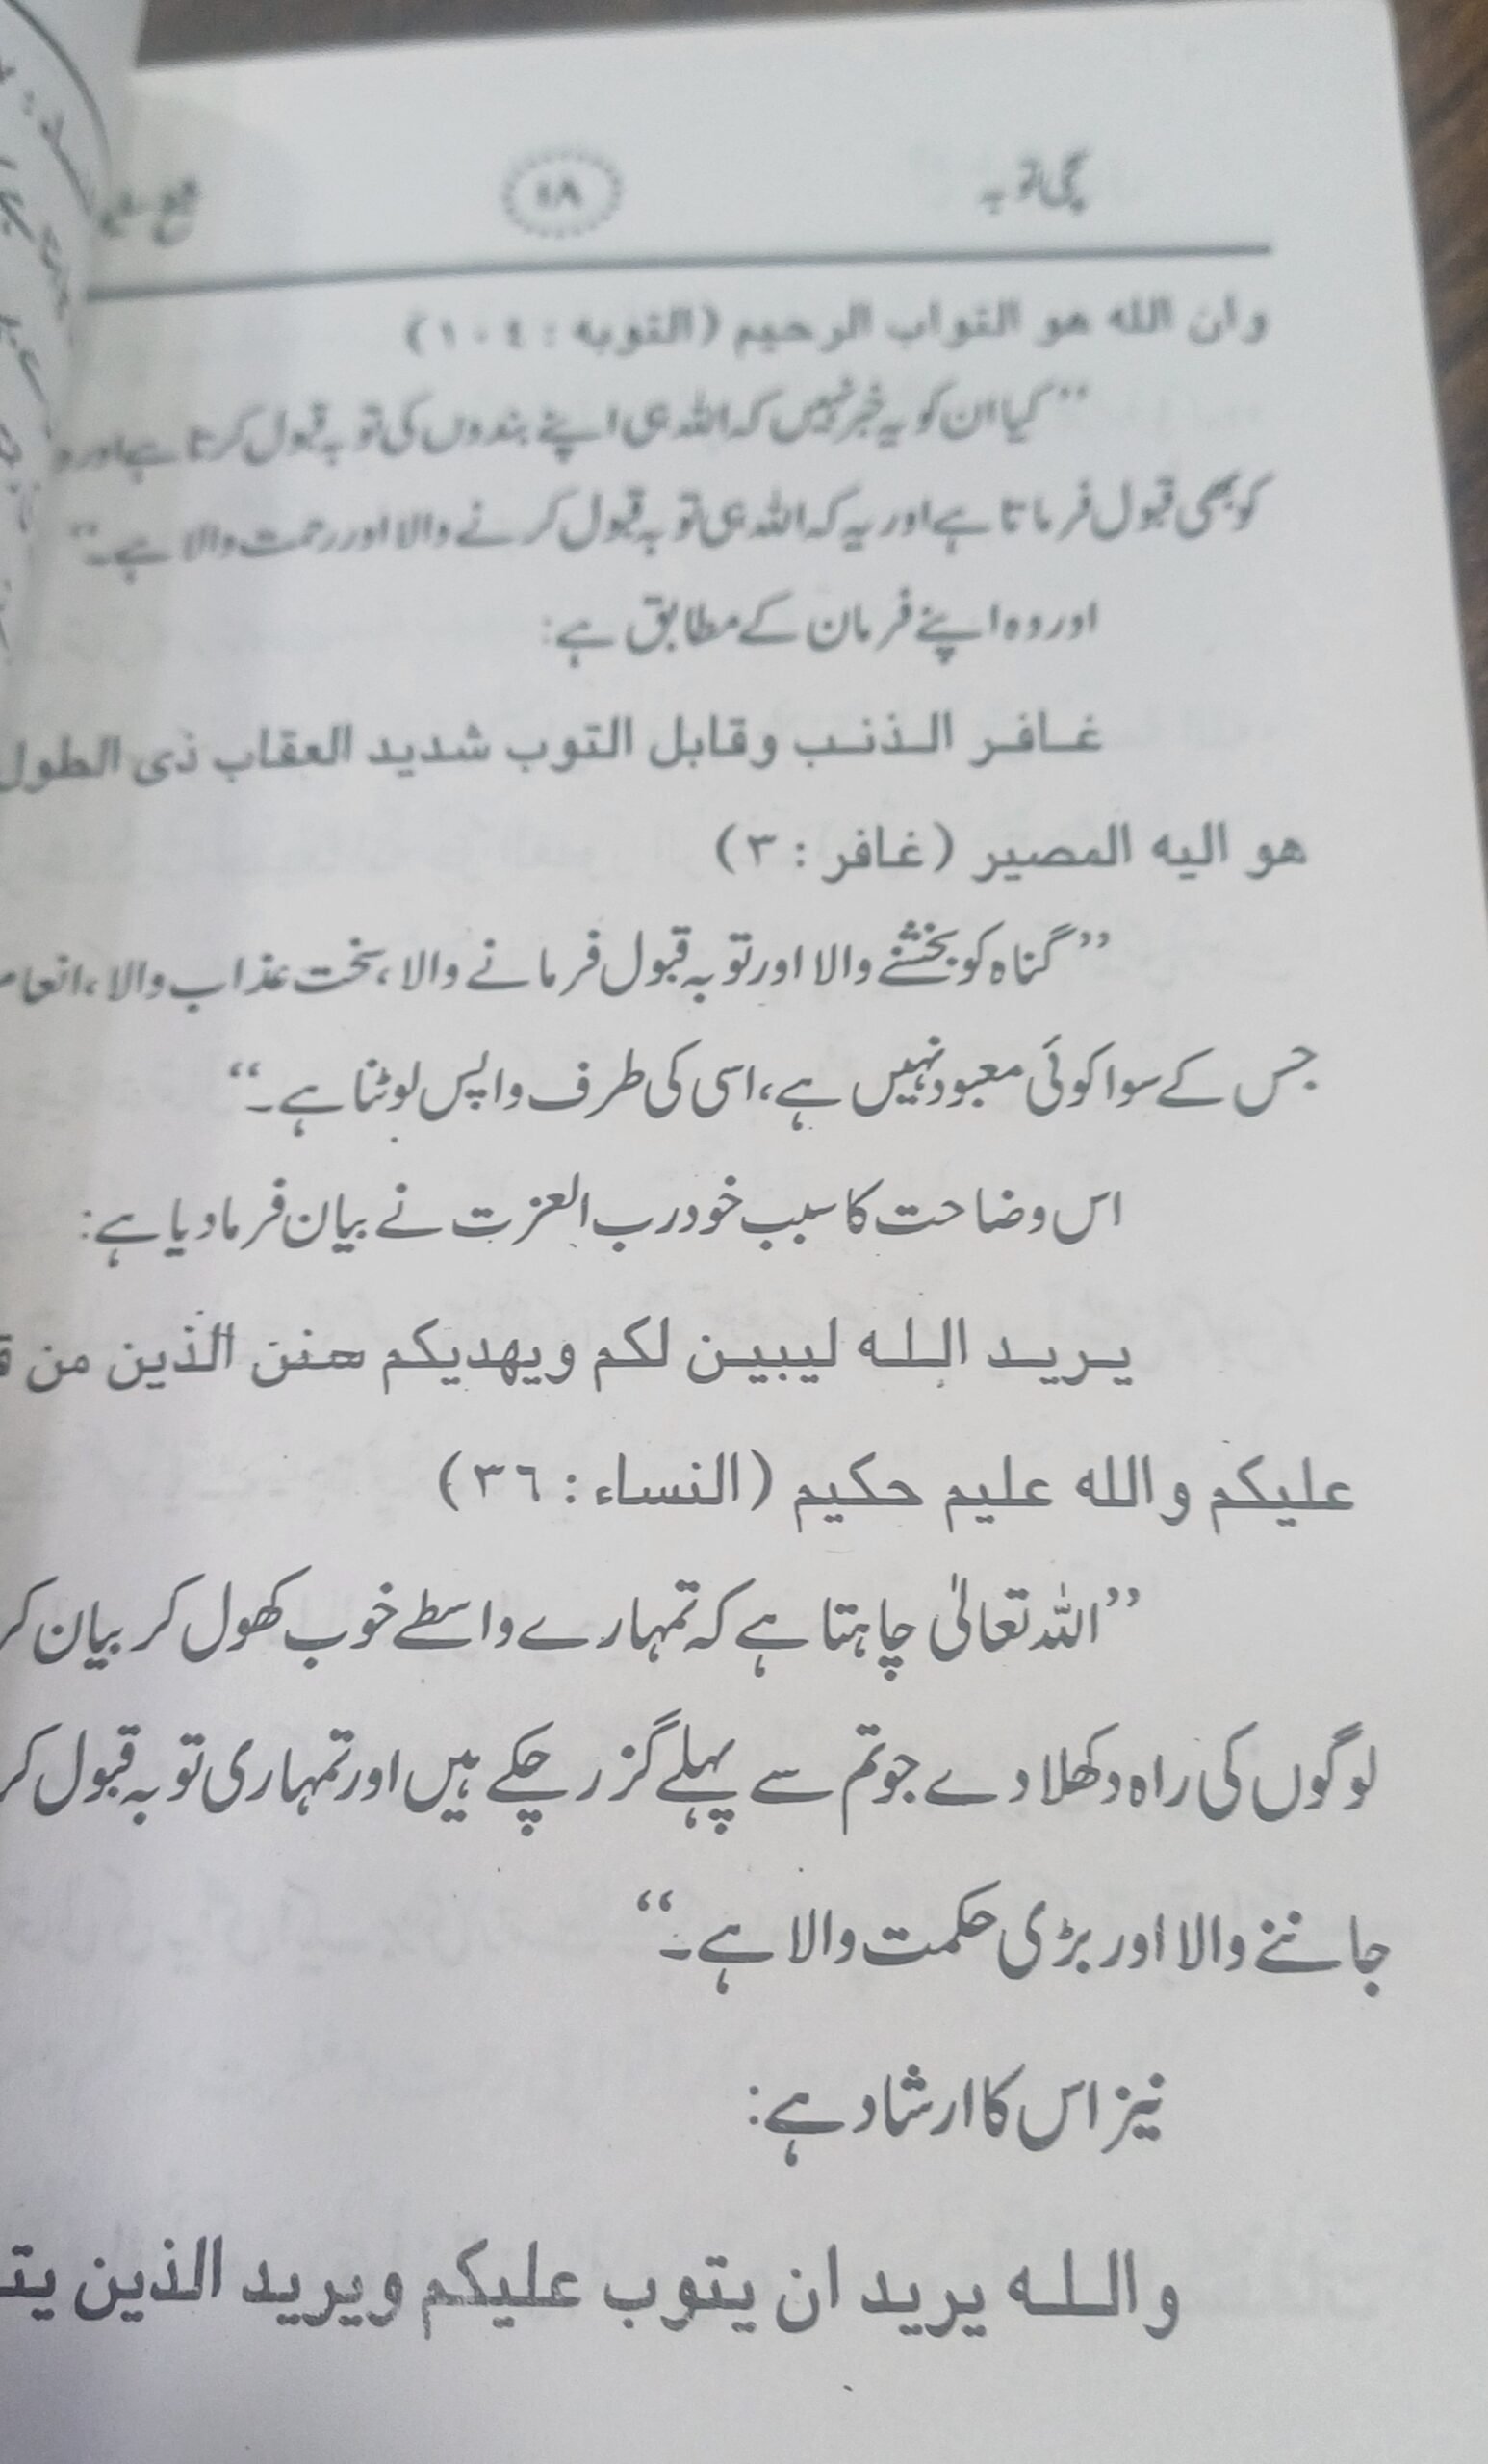 سچی توبہ
۱۸
وان الله هو التواب الرحيم (التوبه : ١٠٤)
”کیا ان کو یہ خبر نہیں کہ اللہ ہی اپنے بندوں کی توبہ قبول کرتا ہے اور و
کو بھی قبول فرماتا ہے اور یہ کہ اللہ ہی توبہ قبول کرنے والا اور رحمت والا ہے۔“
اور وہ اپنے فرمان کے مطابق ہے:
غافر الذنب وقابل التوب شديد العقاب ذى الطول
هو اليه المصير (غافر : ٣)
”گناہ کو بخشنے والا اور توبہ قبول فرمانے والا، سخت عذاب والا، انعام
جس کے سوا کوئی معبود نہیں ہے، اسی کی طرف واپس لوٹنا ہے۔“
اس وضاحت کا سبب خود رب العزت نے بیان فرما دیا ہے:
يريد الله ليبين لكم ويهديكم سنن الذين من ق
عليكم والله عليم حكيم (النساء : ٣٦)
”اللہ تعالیٰ چاہتا ہے کہ تمہارے واسطے خوب کھول کر بیان کر
لوگوں کی راہ دکھلا دے جو تم سے پہلے گزر چکے ہیں اور تمہاری توبہ قبول کر
جاننے والا اور بڑی حکمت والا ہے۔“
نیز اس کا ارشاد ہے:
والله يريد ان يتوب عليكم ويريد الذين يت